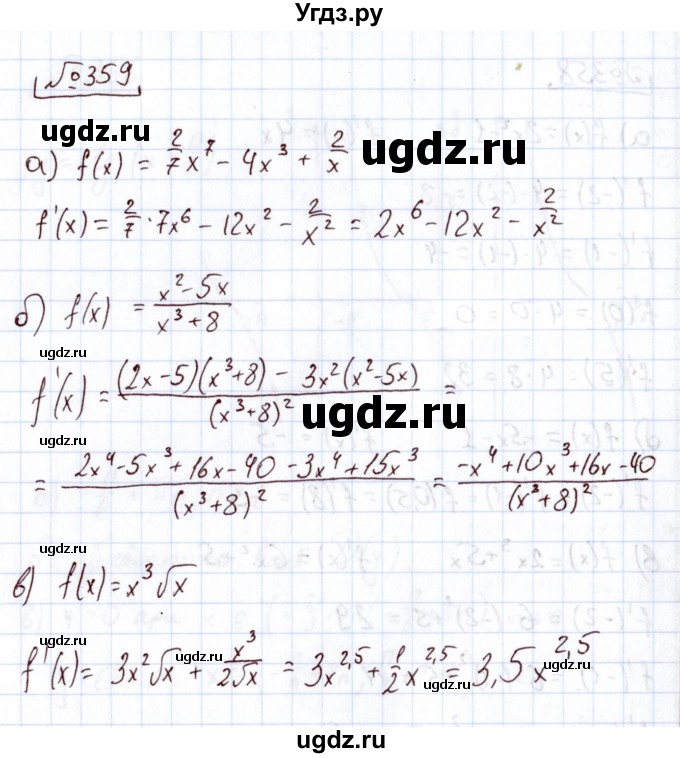 Угдз.ру
№359
ugdz.ru
а) f(x) = 2/7 x^7 - 4x^3 + 2/x
ugdz.ru
f'(x) = 2/7 · 7x^6 - 12x^2 - 2/x^2 = 2x^6 - 12x^2 - 2/x^2
б) f(x) = (x^2 - 5x)/(x^3 + 8)
ugdz.ru
f'(x) = ((2x - 5)(x^3 + 8) - 3x^2(x^2 - 5x))/(x^3 + 8)^2 =
ugdz.ru
ugdz.ru
= (2x^4 - 5x^3 + 16x - 40 - 3x^4 + 15x^3)/(x^3 + 8)^2 = (-x^4 + 10x^3 + 16x - 40)/(x^3 + 8)^2
ugdz.ru
в) f(x) = x^3 √x
ugdz.ru
f'(x) = 3x^2 √x + x^3/(2√x) = 3x^2,5 + 1/2 x^2,5 = 3,5x^2,5
ugdz.ru
ugdz.ru
ugdz.ru
ugdz.ru
ugdz.ru